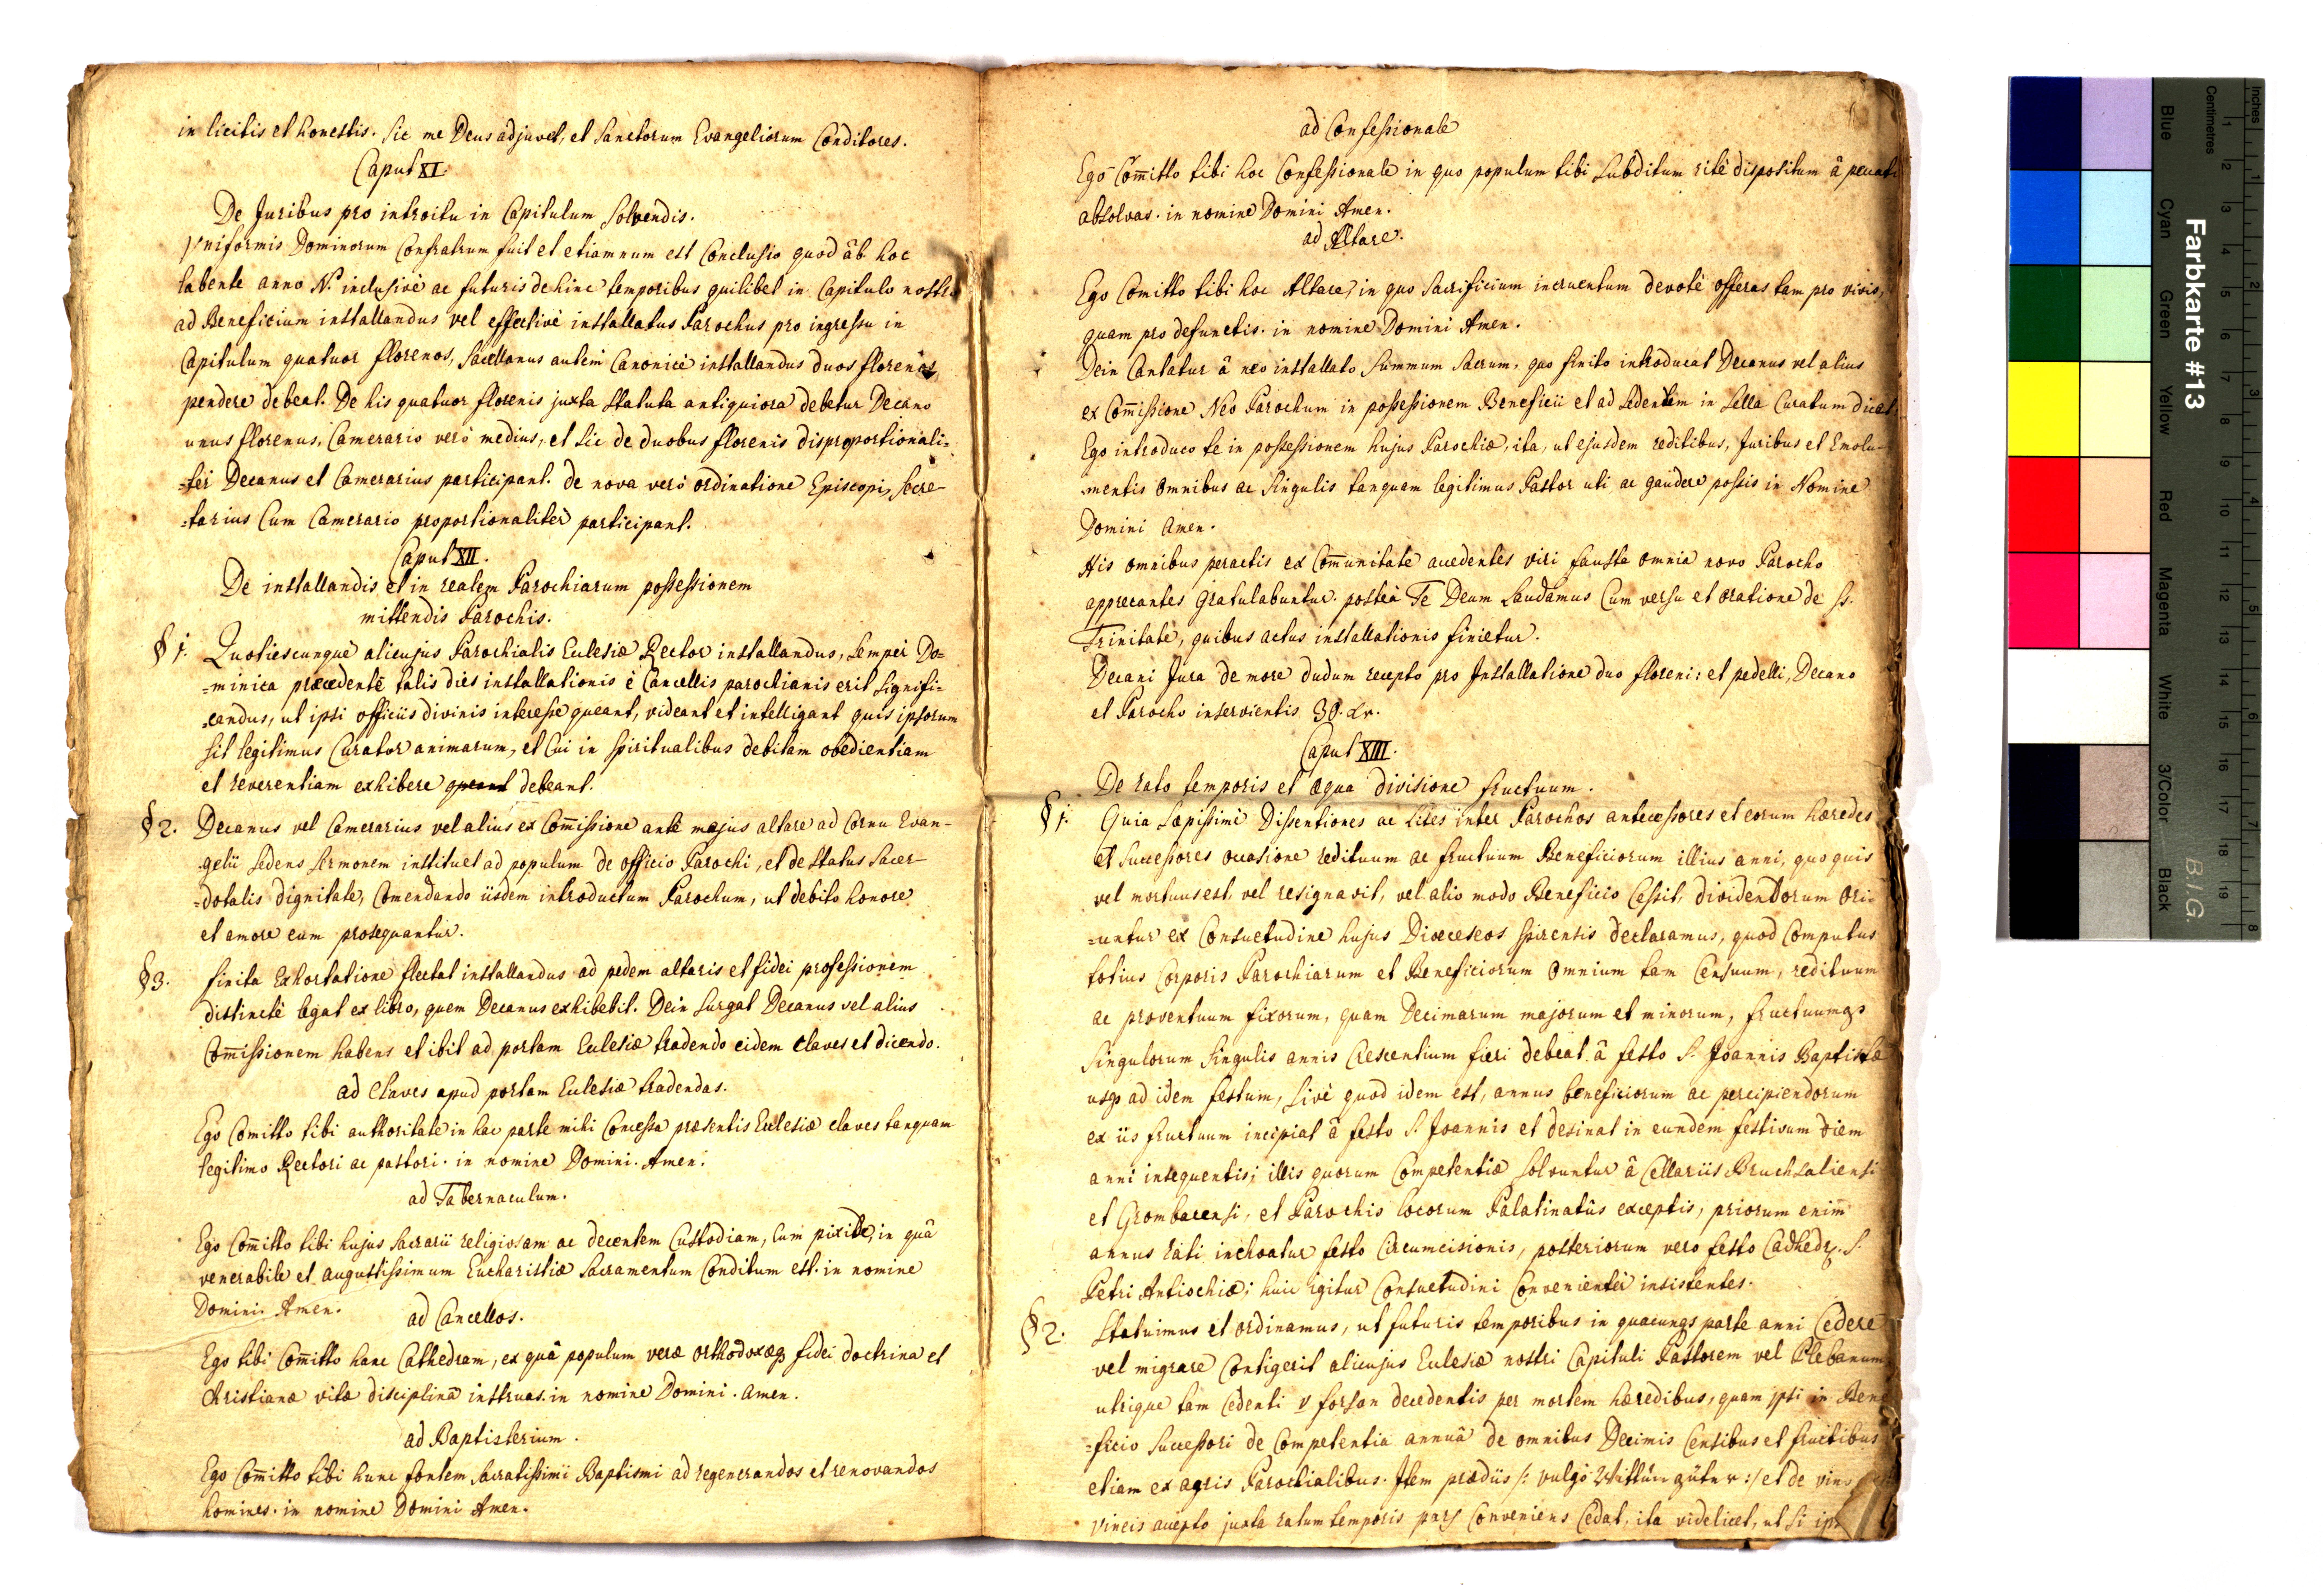 in licitis et honestis. Sic me Deus adjuvet, et Sanctorum Evangeliorum Conditores.
Caput XI.
De Juribus pro introitu in Capitulum Solvendis.
Vniformis Dominorum Confratrum fuit et etiamnum est Conclusio quod âb hoc
labente anno N. inclusivè ac futuris dehinc temporibus quilibet in Capitulo nostro
ad Beneficium installandus vel effectivè installatus Parochus pro ingressu in
Capitulum quatuor florenos, Sacellanus autem Canonicè installandus duos florenos
pendere debeat. De his quatuor florenis juxta Statuta antiquiora debetur Decano
unus florenus, Camerario verò medius, et Sic de duobus florenis disproportionali=
=ter Decanus et Camerarius participant. de nova verò ordinatione Episcopi, Secre-
=tarius Cum Camerario proportionaliter participant.
Caput XII.
De installandis et in realem Parochiarum possessionem
mittendis Parochis.
§ 1. Quotiescunque alicujus Parochialis Ecclesiæ Rector installandus, Semper Do=
=minica præcedente talis dies installationis è Cancellis parochianis erit Signifi=
=candus, ut ipsi officiis divinis interesse queant, videant et intelligant quis ipsorum
Sit legitimus Curator animarum, et Cui in Spiritualibus debitam obedientiam
et reverentiam exhibere queant debeant.
§ 2. Decanus vel Camerarius vel alius ex Com̄issione ante majus altare ad Cornu Evan-
gelii Sedens Sermonem instituet ad populum de officio Parochi, et de Status Sacer-
=dotalis dignitate, Comendando iisdem introductum Parochum, ut debito honore
et amore eum prosequantur.
§ 3. finita Exhortatione flectat installandus ad pedem altaris et fidei professionem
distinctè legat ex libro, quem Decanus exhibebit. Dein Surgat Decanus vel alius
Com̄issionem habens et ibit ad portam Ecclesiæ tradendo eidem Claves et dicendo.
ad Claves apud portam Ecclesiæ tradendas.
Ego Comitto tibi authoritate in hac parte mihi Concessa præsentis Ecclesiæ claves tanquam
legitimo Rectori ac pastori. in nomine Domini. Amen.
ad Tabernaculum.
Ego Com̄itto tibi hujus Sacrarii religiosam ac decentem Custodiam, Cum pixide, in quâ
venerabile et augustissimum Eucharistiæ Sacramentum Conditum est. in nomine
Domini. Amen.
ad Cancellos.
Ego tibi Com̄itto hanc Cathedram, ex quâ populum veræ orthodoxæq3 fidei doctrina et
Christianæ vitæ disciplinâ instruas. in nomine Domini. Amen.
ad Baptisterium.
Ego Com̄itto tibi hunc fontem Sacratissimi Baptismi ad regenerandos et renovandos
homines. in nomine Domini Amen.
ad Confessionale
Ego Com̄itto tibi hoc Confessionale in quo populum tibi Subditum ritè dispositum â peccatis
absolvas. in nomine Domini Amen.
ad Altare.
Ego Comitto tibi hoc Altare, in quo Sacrificium incruentum devotè offeras tam pro vivis,
quam pro defunctis. in nomine Domini Amen.
Dein Cantatur â neo installato Summum Sacrum, quo finito introducat Decanus vel alius
ex Com̄issione Neo Parochum in possessionem Beneficii et ad Sedentem in Sella Curatum dicat
Ego introduco te in possessionem hujus Parochiæ, ita, ut ejusdem reditibus, Juribus et Emolu-
mentis omnibus ac Singulis tanquam legitimus Pastor uti ac gaudere possis in Nomine
Domini Amen.
His omnibus peractis ex Com̄unitate accedentes viri fausta omnia novo Parocho
apprecantes gratulabuntur. posteà Te Deum Laudamus Cum versu et oratione de SS.
Trinitate, quibus actus installationis finietur.
Decani Jura de more dudum recepto pro Installatione duo floreni: et pedelli, Decano
et Parocho inservientis 30. xr.
Caput XIII.
De rato temporis et æqua divisione fructuum.
§ 1. Quia Sæpissimè Dissentiones ac Lites inter Parochos antecessores et eorum hæredes
et Successores occasione redituum ac fructuum Beneficiorum illius anni, quo quis
vel mortuus est, vel resignavit, vel alio modo Beneficio Cessit, dividendorum Ori=
=untur ex Consuetudine hujus Dioeceseos Spirensis declaramus, quod Computus
totius Corporis Parochiarum et Beneficiorum omnium tam Censuum, redituum
ac proventuum fixorum, quam Decimarum majorum et minorum, fructuumq3
Singulorum Singulis annis Crescentium fieri debeat â festo S. Joannis Baptistæ
usq3 ad idem festum, Sivè quod idem est, annus beneficiorum ac percipiendorum
ex iis fructuum incipiat â festo S. Joannis et desinat in eundem festivum diem
anni insequentis; illis quorum Competentiæ Solvuntur â Cellariis Bruchsaliensi
et Grombacensi, et Parochis locorum Palatinatûs exceptis, priorum enim̄
annus rati inchoatur festo Circumcisionis, posteriorum vero festo Cadhedr. S.
Petri Antiochiæ; huic igitur Consuetudini Convenienter insistentes.
§ 2. Statuimus et ordinamus, ut futuris temporibus in quacunq3 parte anni Cedere
vel migrare Contigerit alicujus Ecclesiæ nostri Capituli Pastorem vel Plebanum
utrique tam Cedenti v forsan decedentis per mortem hæredibus, quam ipsi in Bene
=ficio Successori de Competentia annuâ de omnibus Decimis Censibus et fructibus
etiam ex agris Parochialibus. Item prædiis /: vulgò Witthum güter :/ et de vino
Vineis accepto juxta ratum temporis pars Conveniens Cedat, ita videlicet, ut Si
Farbkarte #13
B.I.G.
Inches
Centimetres
1 2 3 4 5 6 7 8
1 2 3 4 5 6 7 8 9 10 11 12 13 14 15 16 17 18 19
Blue
Cyan
Green
Yellow
Red
Magenta
White
3/Color
Black